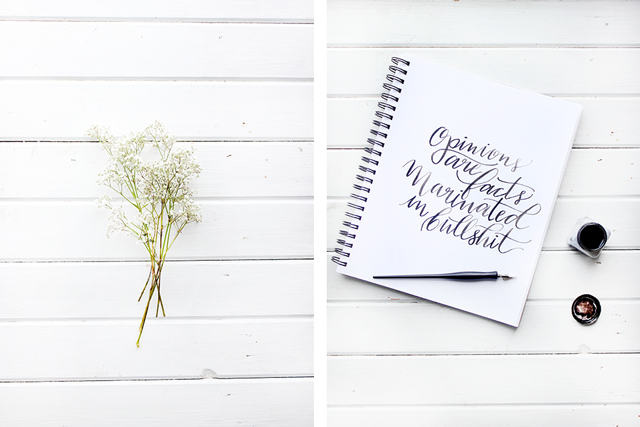 Opinions
are facts
Marinated
in bullshit